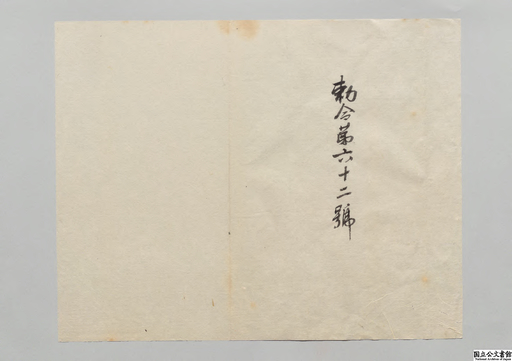 勅令第六十二號
国立公文書館
National Archives of Japan